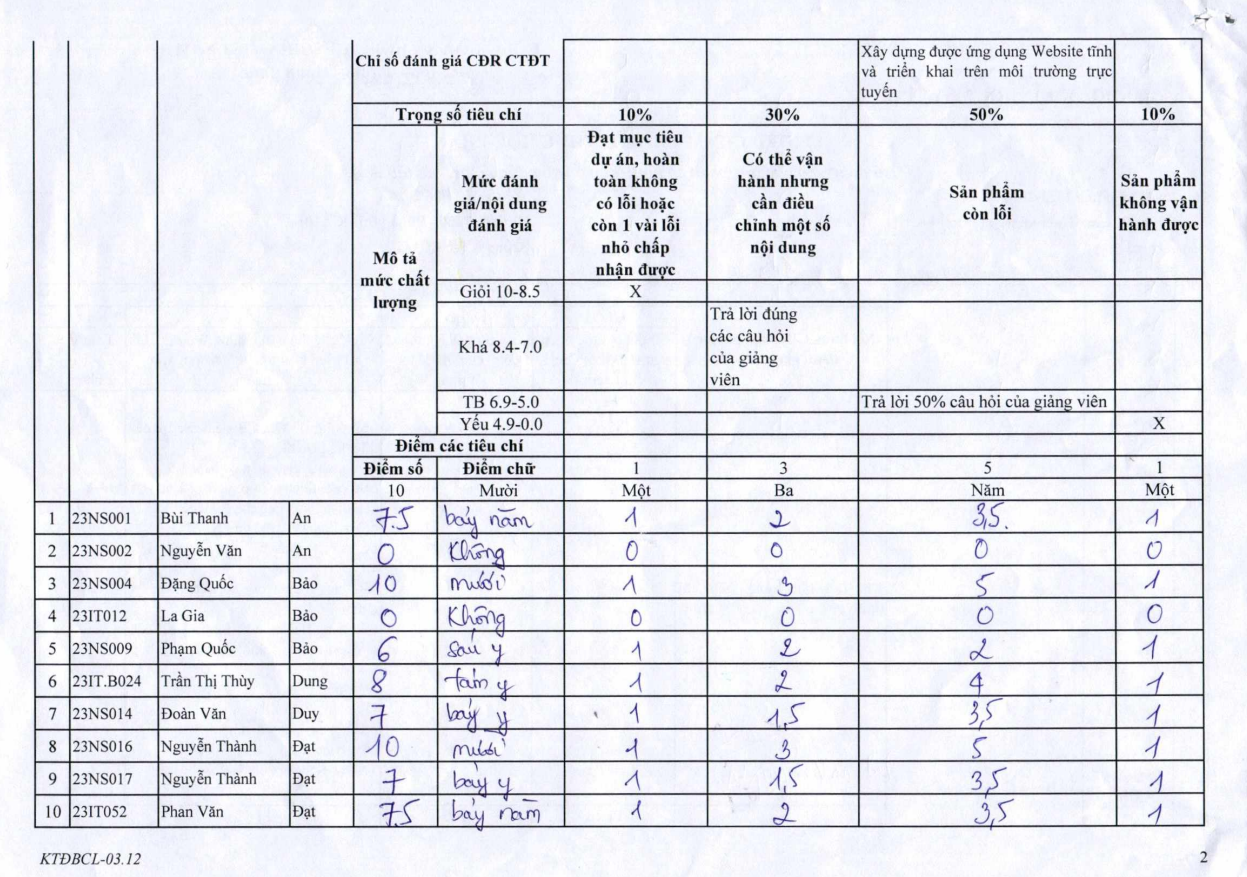 Chỉ số đánh giá CĐR CTĐT
Xây dựng được ứng dụng Website tĩnh
và triển khai trên môi trường trực
tuyến
Trọng số tiêu chí 10% 30% 50% 10%
Mô tả
mức chất
lượng
Mức đánh
giá/nội dung
đánh giá
Đạt mục tiêu
dự án, hoàn
toàn không
có lỗi hoặc
còn 1 vài lỗi
nhỏ chấp
nhận được
Có thể vận
hành nhưng
cần điều
chỉnh một số
nội dung
Sản phẩm
còn lỗi
Sản phẩm
không vận
hành được
Giỏi 10-8.5 X
Khá 8.4-7.0
Trả lời đúng
các câu hỏi
của giảng
viên
TB 6.9-5.0 Trả lời 50% câu hỏi của giảng viên
Yếu 4.9-0.0 X
Điểm các tiêu chí
Điểm số Điểm chữ 1 3 5 1
10 Mười Một Ba Năm Một
1 23NS001 Bùi Thanh An 7.5 bảy năm 1 2 3,5. 1
2 23NS002 Nguyễn Văn An 0 Không 0 0 0 0
3 23NS004 Đặng Quốc Bảo 10 mười 1 3 5 1
4 23IT012 La Gia Bảo 0 Không 0 0 0 0
5 23NS009 Phạm Quốc Bảo 6 sáu y 1 2 2 1
6 23IT.B024 Trần Thị Thùy Dung 8 tám y 1 2 4 1
7 23NS014 Đoàn Văn Duy 7 bảy y 1 1,5 3,5 1
8 23NS016 Nguyễn Thành Đạt 10 mười 1 3 5 1
9 23NS017 Nguyễn Thành Đạt 7 bảy y 1 1,5 3,5 1
10 23IT052 Phan Văn Đạt 7.5 bảy năm 1 2 3,5 1
KTĐBCL-03.12 2